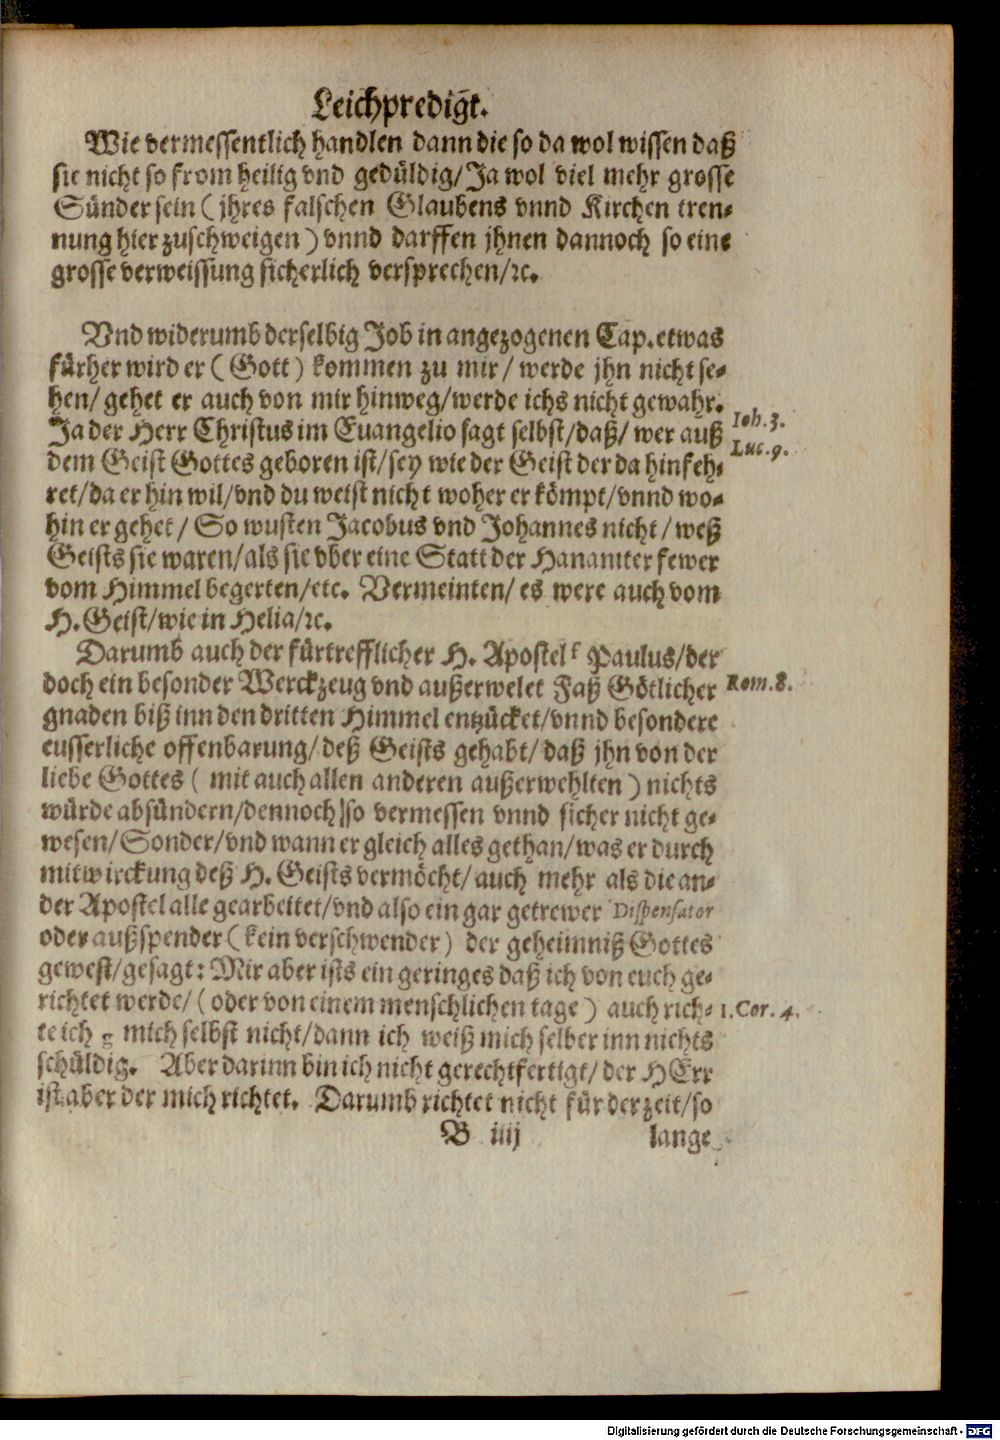 Leichpredigt.
Wie vermessentlich handlen dann die so da wol wissen daß
sie nicht so from heilig vnd gedüldig/ Ja wol viel mehr grosse
Sünder sein ( jhres falschen Glaubens vnnd Kirchen tren-
nung hier zuschweigen ) vnnd darffen jhnen dannoch so eine
grosse verweissung sicherlich versprechen/ꝛc.
Vnd widerumb derselbig Job in angezogenen Cap. etwas
fürher wird er ( Gott ) kommen zu mir / werde jhn nicht se-
hen/ gehet er auch von mir hinweg/werde ichs nicht gewahr.
Ja der Herr Christus im Euangelio sagt selbst/daß/ wer auß
Ioh. 3.
Luc. 9.
dem Geist Gottes geboren ist/sey wie der Geist der da hinfeh-
ret/da er hin wil/vnd du weist nicht woher er kömpt/vnnd wo-
hin er gehet/ So wusten Jacobus vnd Johannes nicht / weß
Geists sie waren/als sie vber eine Statt der Hanamiter fewer
vom Himmel begerten/etc. Vermeinten/ es were auch vom
H. Geist/wie in Helia/ꝛc.
Darumb auch der fürtrefflicher H. Apostel Paulus/der
doch ein besonder Werckzeug vnd außerwelet Faß Götlicher
Rom. 8.
gnaden biß inn den dritten Himmel entzücket/vnnd besondere
eusserliche offenbarung/deß Geists gehabt/daß jhn von der
liebe Gottes ( mit auch allen anderen außerwehlten ) nichts
würde absündern/dennoch so vermessen vnnd sicher nicht ge-
wesen/Sonder/vnd wann er gleich alles gethan/was er durch
mitwirckung deß H. Geists vermöcht/auch mehr als die an-
der Apostel alle gearbeitet/vnd also ein gar getrewer Dispensator
oder außspender ( kein verschwender ) der geheimniß Gottes
gewest/gesagt: Mir aber ists ein geringes daß ich von euch ge-
richtet werde/ ( oder von einem menschlichen tage ) auch rich-
1. Cor. 4.
te ich mich selbst nicht/dann ich weiß mich selber inn nichts
schüldig. Aber darinn bin ich nicht gerechtfertigt/ der HErr
ist aber der mich richtet. Darumb richtet nicht für der zeit/so
B iiij lange
Digitalisierung gefördert durch die Deutsche Forschungsgemeinschaft - DFG